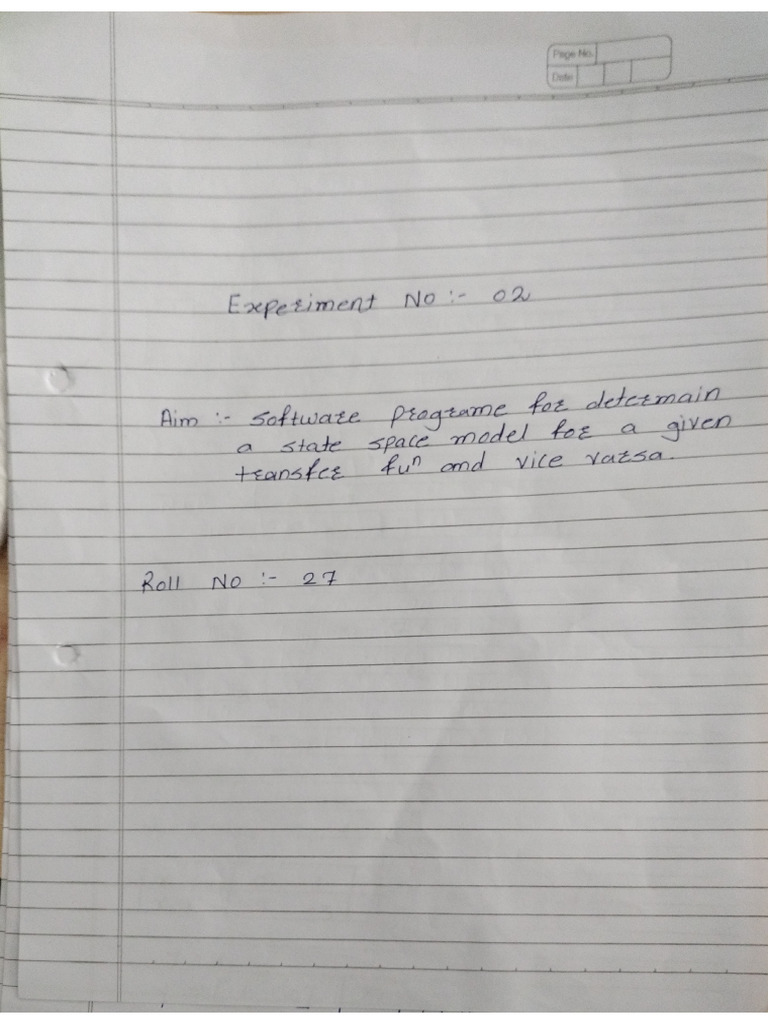 Page No.
Date
Experiment No :- 02
Aim :- software programe for determain
a state space model for a given
transfer fuⁿ and vice varsa.
Roll No :- 27